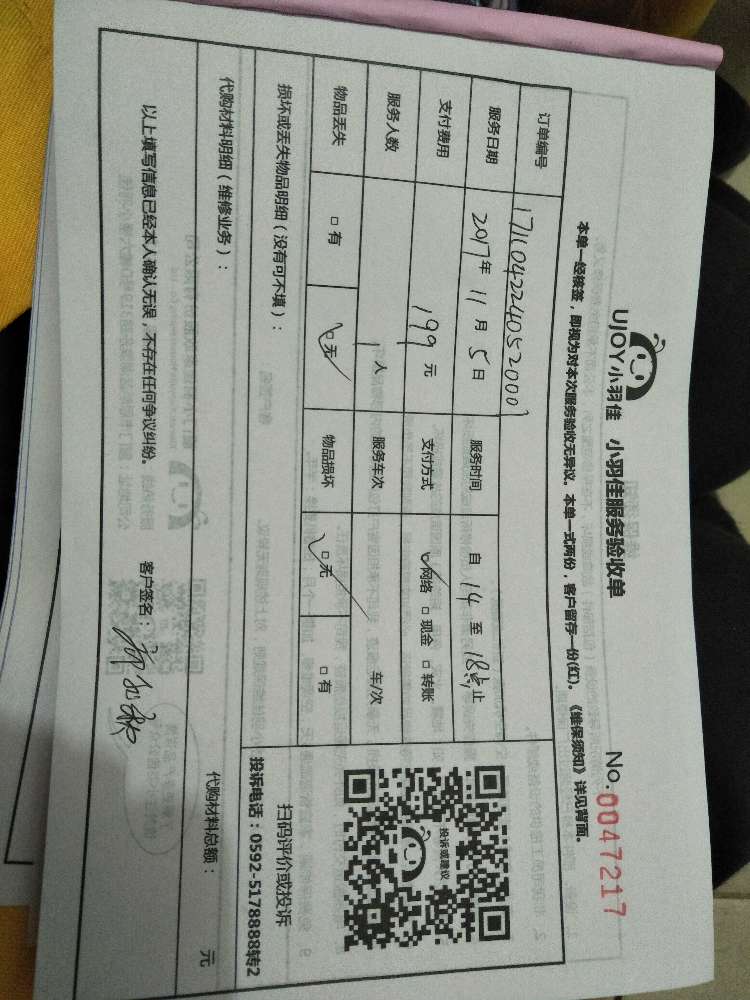 UJOY小羽佳 小羽佳服务验收单
No.0047217
本单一经核签，即视为对本次服务验收无异议。本单一式两份，客户留存一份(红)。《维保须知》详见背面。
订单编号 171104224052000
服务日期 2017年 11月 5日 服务时间 自 14 至 18点止
支付费用 199 元 支付方式 ☑网络 □现金 □转账
服务人数 1人 服务车次 车/次
物品丢失 □有 ☑无 物品损坏 ☑无 □有
投诉或建议
扫码评价或投诉
投诉电话：0592-5178888转2
损坏或丢失物品明细（没有可不填）：
代购材料明细（维修业务）：
代购材料总额： 元
以上填写信息已经本人确认无误，不存在任何争议纠纷。
客户签名：